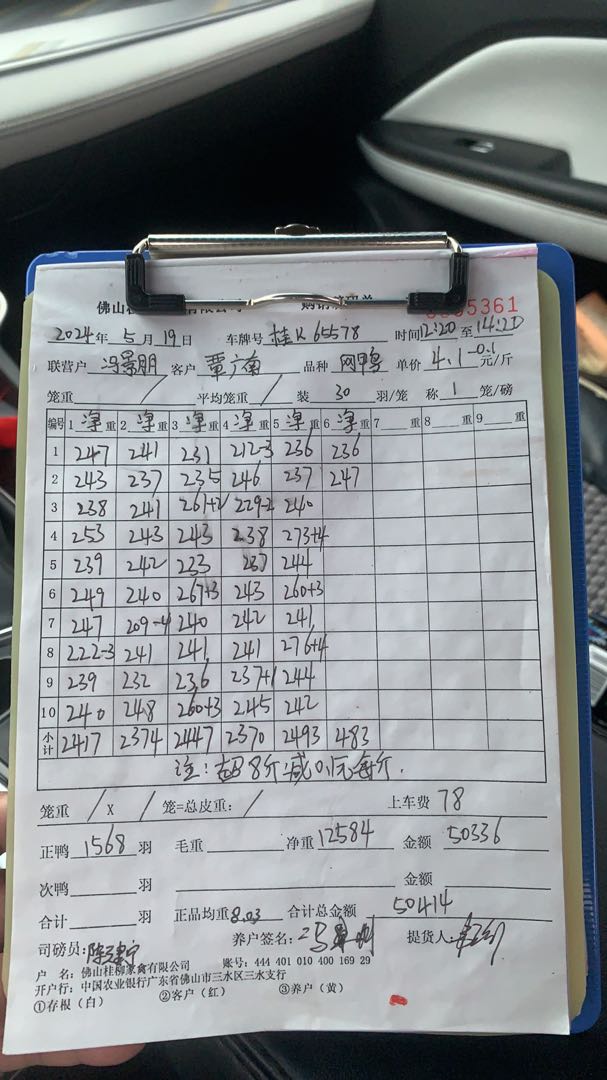 佛山桂
5361
2024年5月19日 车牌号 桂K65578 时间12:20至14:20
联营户 冯景朋 客户 覃广南 品种 网鸭 单价 4.1-0.1 元/斤
笼重 / 平均笼重 / 装 30 羽/笼 称 1 笼/磅
编号 1 净重 2 净重 3 净重 4 净重 5 净重 6 净重 7 重 8 重 9 重
1 247 241 231 212-3 236 236
2 243 237 235 246 237 247
3 238 241 261+2 229-2 240
4 253 243 243 238 273+4
5 239 242 233 237 244
6 249 240 267+3 243 260+3
7 247 209-4 240 242 241
8 222-3 241 241 241 276+4
9 239 232 236 237+1 244
10 240 248 260+3 245 242
小计 2417 2374 2447 2370 2493 483
注:超8斤减0.1元每斤.
笼重 / X / 笼=总皮重: / 上车费 78
正鸭 1568 羽 毛重 净重 12584 金额 50336
次鸭 羽 金额
合计 羽 正品均重 8.03 合计总金额 50414
司磅员: 养户签名: 提货人:
户 名:佛山桂柳家禽有限公司 账号:444 401 010 400 169 29
开户行:中国农业银行广东省佛山市三水区三水支行
①存根(白) ②客户(红) ③养户(黄)